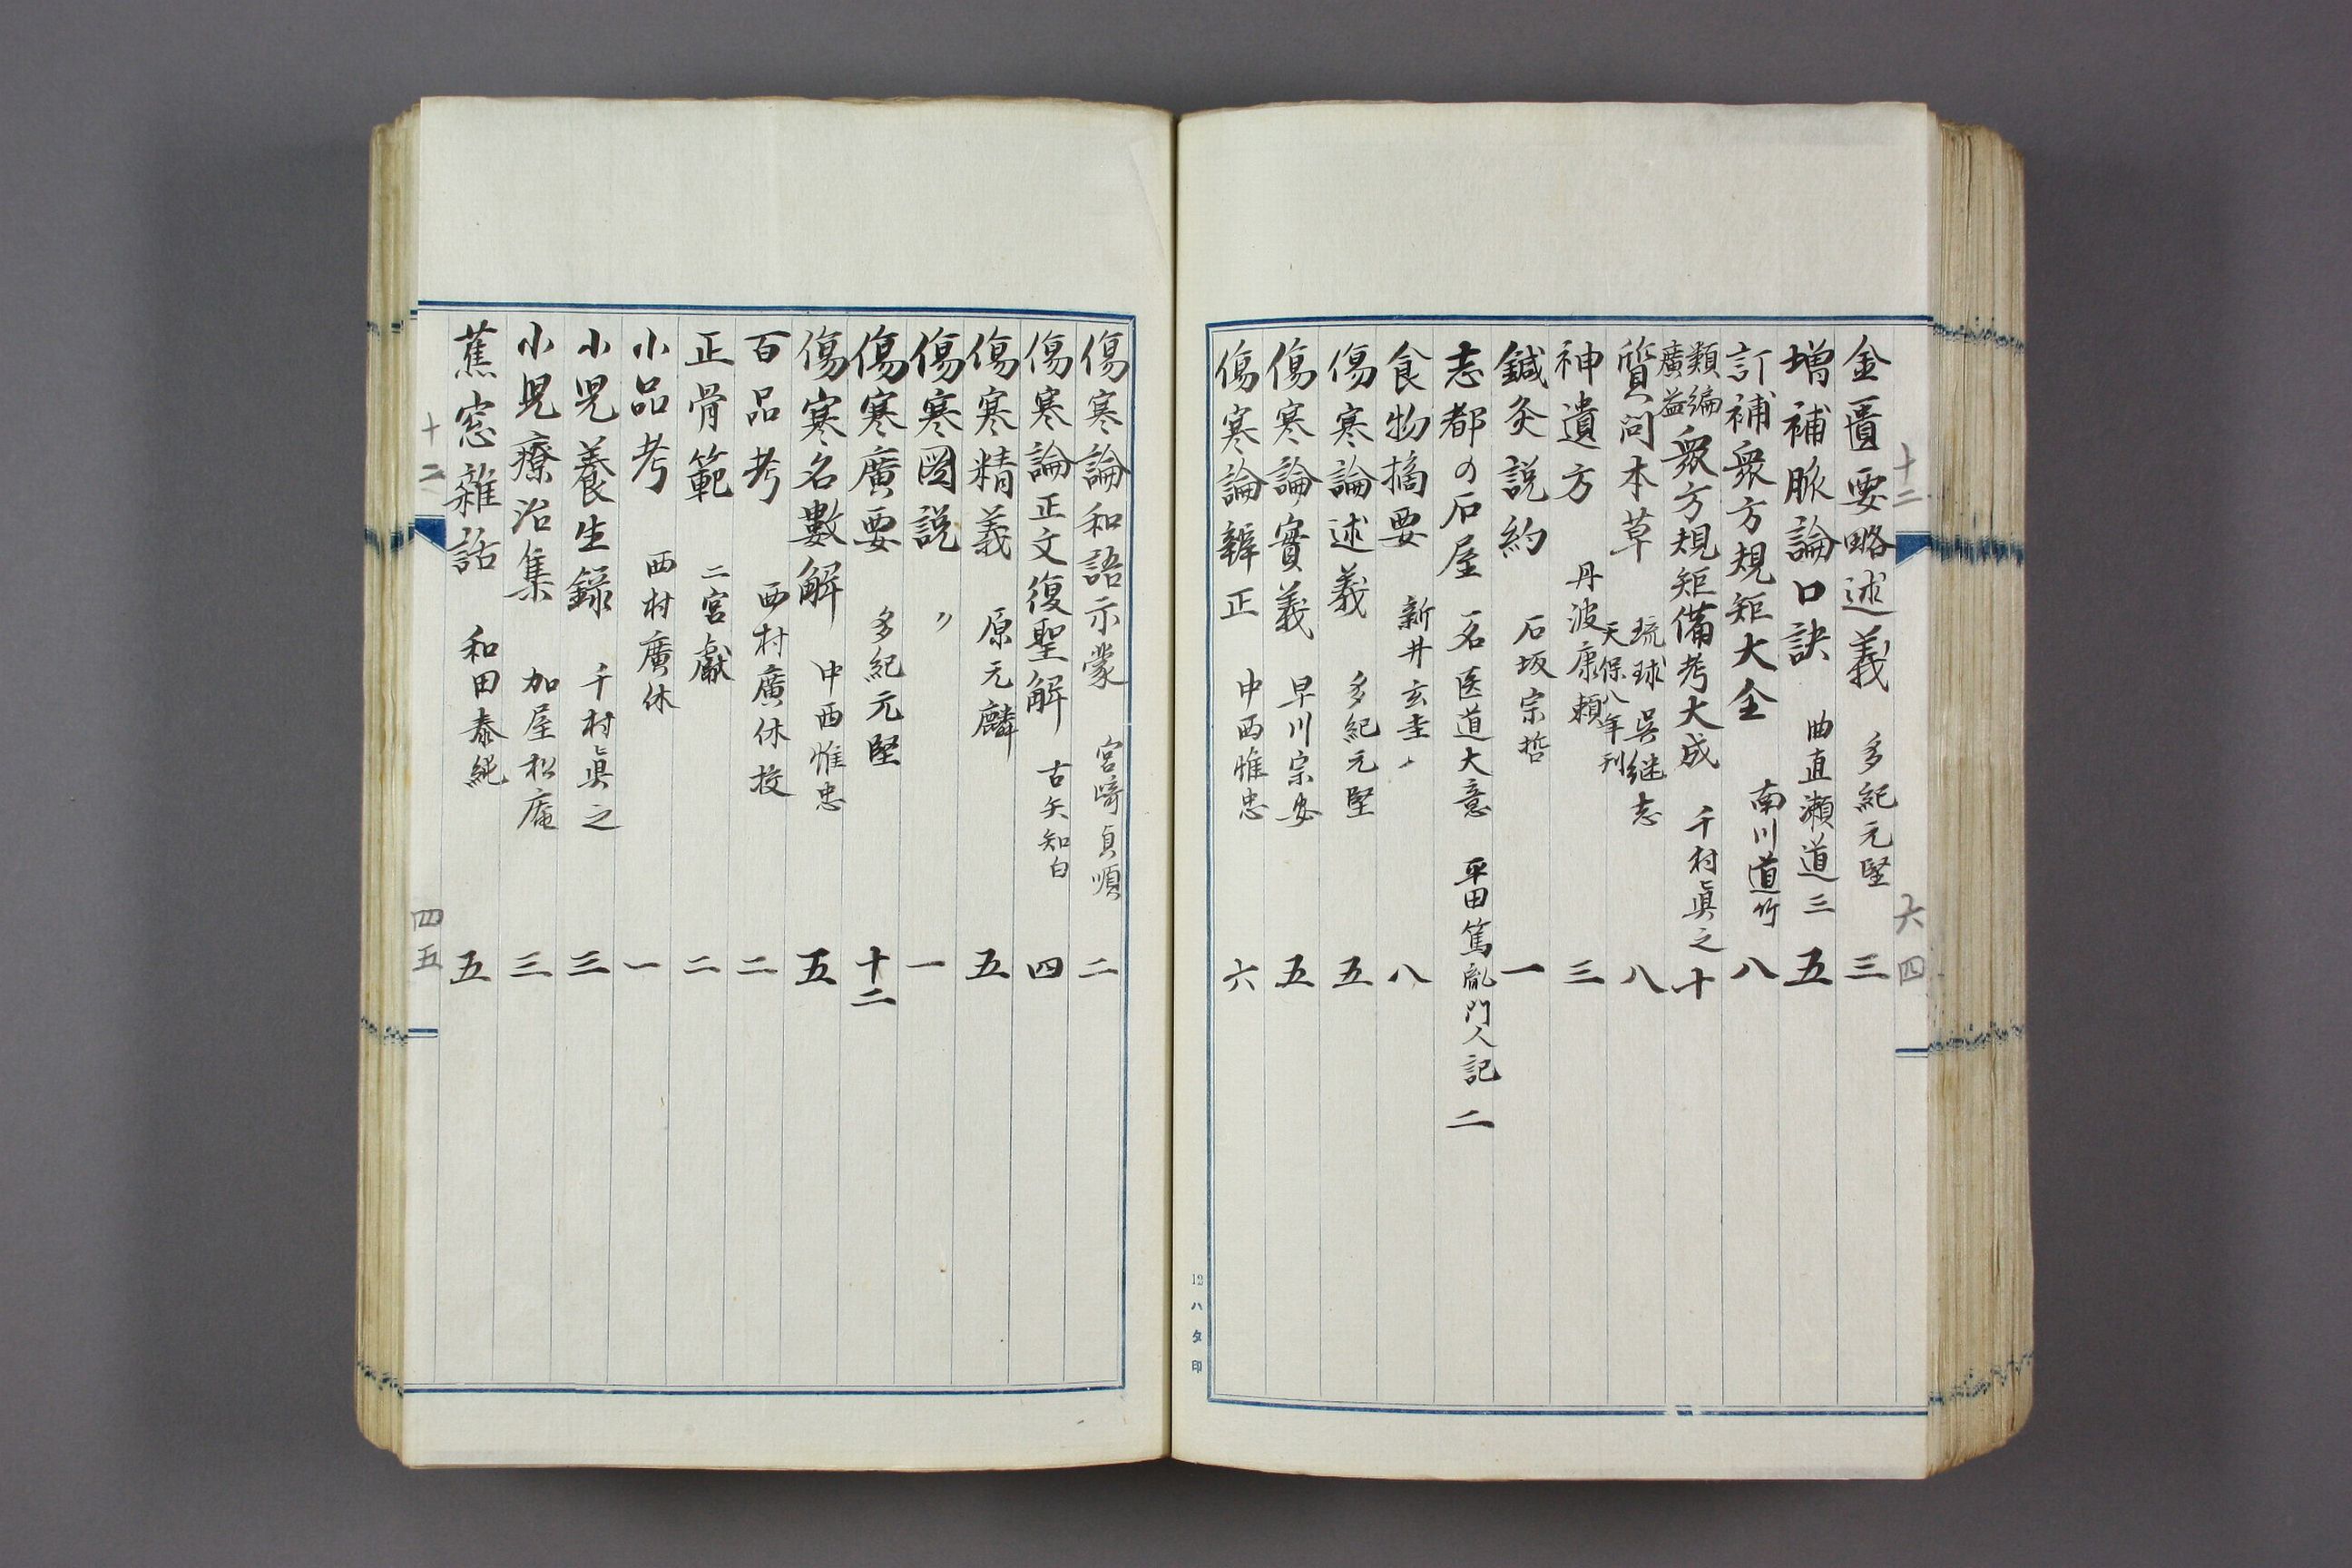 十二 六四
金匱要略述義 多紀元堅 三
増補脈論口訣 曲直瀬道三 五
訂補衆方規矩大全 南川道竹 八
類編廣益衆方規矩備考大成 千村眞之 十
質問本草 琉球 呉継志 天保八年刊 八
神遺方 丹波康頼 三
鍼灸説約 石坂宗哲 一
志都の石屋 一名医道大意 平田篤胤門人記 二
食物摘要 新井玄圭 八
傷寒論述義 多紀元堅 五
傷寒論實義 早川宗安 五
傷寒論辨正 中西惟忠 六
12ハタ印
傷寒論和語示蒙 宮﨑貞順 二
傷寒論正文復聖解 古矢知白 四
傷寒精義 原元麟 五
傷寒図説 〃 一
傷寒廣要 多紀元堅 十二
傷寒名數解 中西惟忠 五
百品考 西村廣休校 二
正骨範 二宮獻 二
小品考 西村廣休 一
小児養生録 千村眞之 三
小児療治集 加屋松庵 三
蕉窓雑話 和田泰純 五
十二 四五